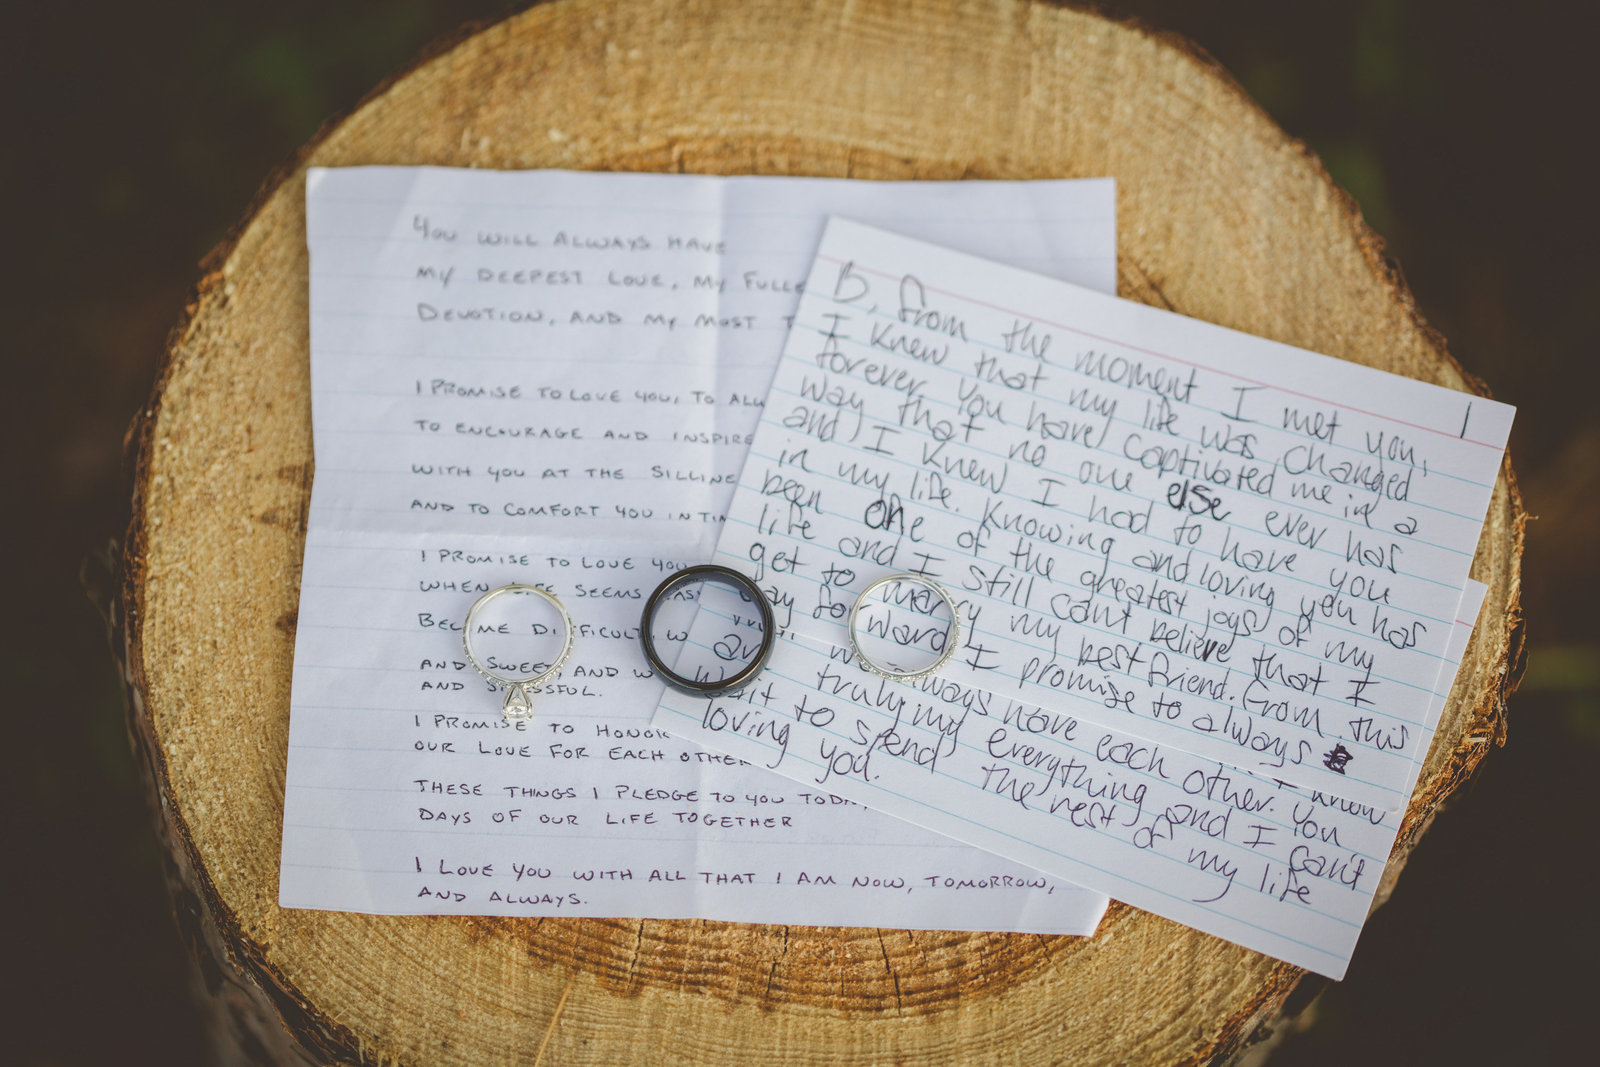 YOU WILL ALWAYS HAVE
MY DEEPEST LOVE, MY FULLE
DEVOTION, AND MY MOST T
I PROMISE TO LOVE YOU, TO ALW
TO ENCOURAGE AND INSPIRE
WITH YOU AT THE SILLINE
AND TO COMFORT YOU IN TIM
I PROMISE TO LOVE YOU
WHEN LIFE SEEMS EAS
BECOME DIFFICULT, W
AND SWEET, AND W
AND STRESSFUL.
I PROMISE TO HONOR
OUR LOVE FOR EACH OTHER
THESE THINGS I PLEDGE TO YOU TODAY,
DAYS OF OUR LIFE TOGETHER
I LOVE YOU WITH ALL THAT I AM NOW, TOMORROW,
AND ALWAYS.
1
B, from the moment I met you,
I knew that my life was changed
forever. You have captivated me in a
way that no one else ever has
and I knew I had to have you
in my life. Knowing and loving you has
been one of the greatest joys of my
life and I still can't believe that I
get to marry my best friend. From this
day forward I promise to always
know
always have each other. You
truly my everything and I can't
wait to spend the rest of my life
loving you.